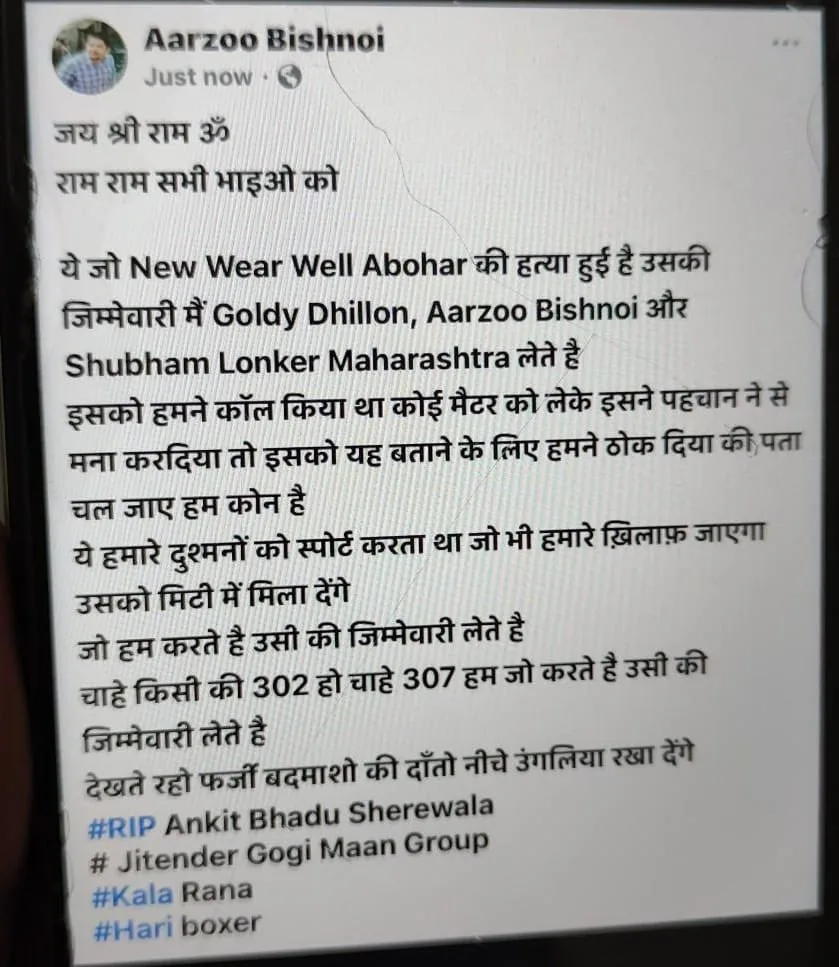 Aarzoo Bishnoi
Just now ·
जय श्री राम ॐ
राम राम सभी भाइओ को
ये जो New Wear Well Abohar की हत्या हुई है उसकी
जिम्मेवारी मैं Goldy Dhillon, Aarzoo Bishnoi और
Shubham Lonker Maharashtra लेते है
इसको हमने कॉल किया था कोई मैटर को लेके इसने पहचान ने से
मना करदिया तो इसको यह बताने के लिए हमने ठोक दिया की पता
चल जाए हम कोन है
ये हमारे दुश्मनों को स्पोर्ट करता था जो भी हमारे ख़िलाफ़ जाएगा
उसको मिटी में मिला देंगे
जो हम करते है उसी की जिम्मेवारी लेते है
चाहे किसी की 302 हो चाहे 307 हम जो करते है उसी की
जिम्मेवारी लेते है
देखते रहो फर्जी बदमाशो की दाँतो नीचे उंगलिया रखा देंगे
#RIP Ankit Bhadu Sherewala
# Jitender Gogi Maan Group
#Kala Rana
#Hari boxer